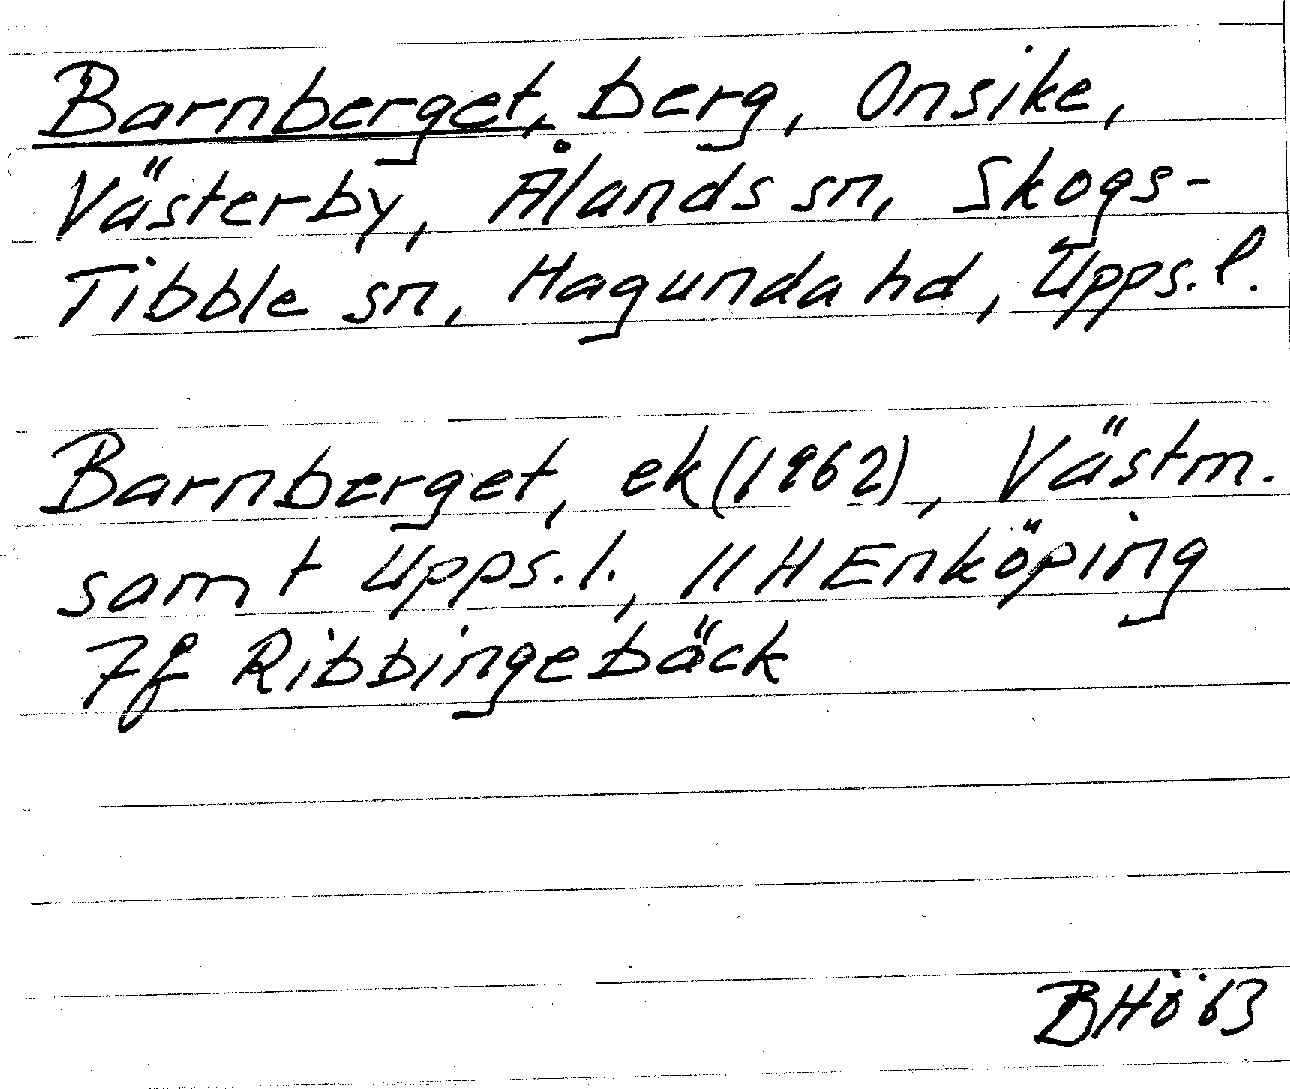 Barnberget, berg, Onsike,
Västerby, Ålands sn, Skogs-
Tibble sn, Hagunda hd, Upps.l.
Barnberget, ek (1962), Västm.
samt Upps.l., 11H Enköping
7f Ribbingebäck
BHö 63